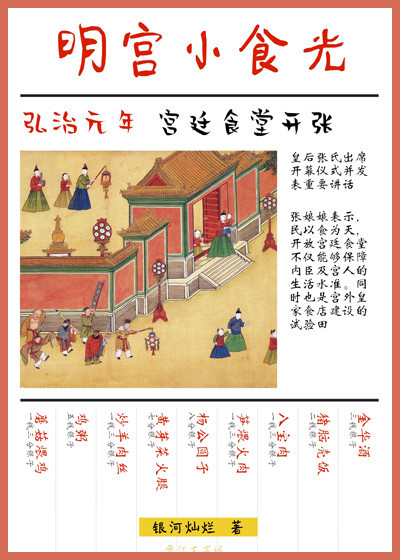 明宫小食光
弘治元年 宫廷食堂开张
皇后张氏出席
开幕仪式并发
表重要讲话
张娘娘表示，
民以食为天，
开放宫廷食堂
不仅能够保障
内臣及宫人的
生活水准。同
时也是宫外皇
家食店建设的
试验田
金华酒
三钱银子
猪脑壳饭
二钱银子
八宝肉
一钱三分银子
笋煨火肉
一钱二分银子
杨公圆子
八分银子
黄芽菜火腿
七分银子
炒羊肉丝
一钱二分银子
鸡粥
五钱银子
蘑菇煨鸡
一钱三分银子
银河灿烂 著